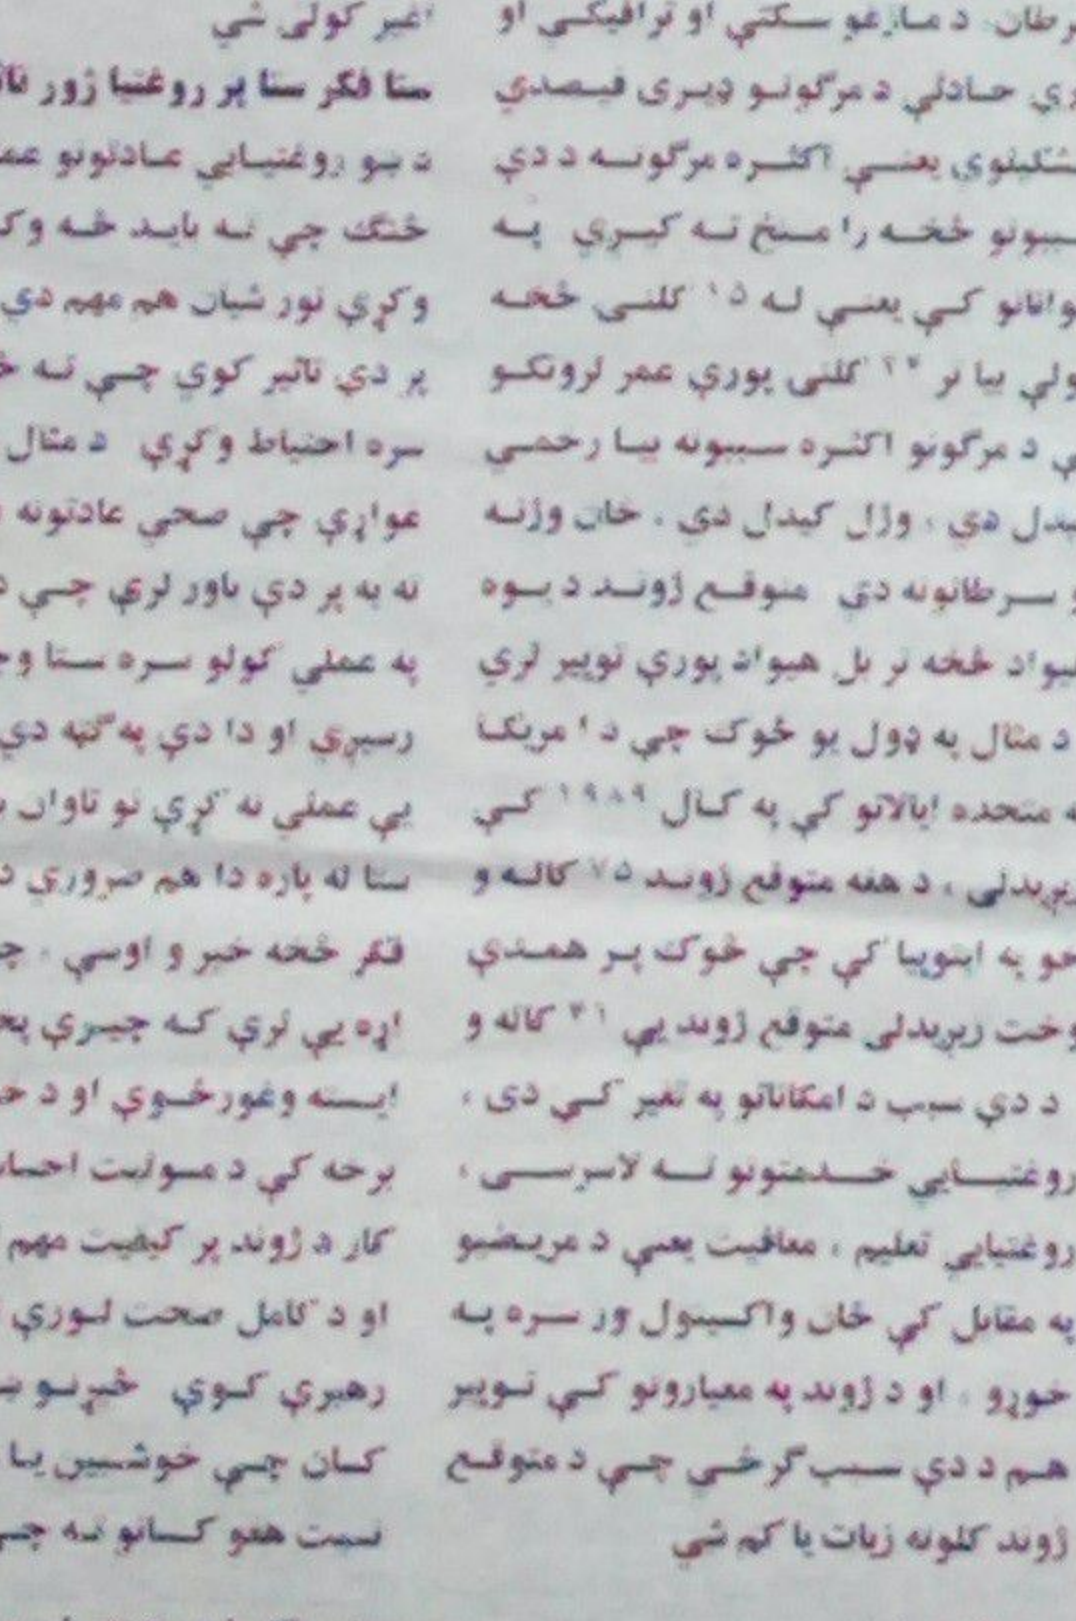 د مازغو سکتې او ترافیکي او
حادثې د مرګونو ډیری فیصدي
یعنــې اکثــره مرګونــه د دې
څخــه را مــنځ تــه کیــږي پــه
کــې یعنــې لــه ۱۵ کلنــۍ څخــه
بیا تر ۲۴ کلنۍ پورې عمر لرونکــو
د مرګونو اکثــره ســببونه بیــا زخمــي
کیدل دي ، وژل کیدل دي ، ځان وژنــه
ســرطانونه دي متوقــع ژونــد د یــوه
هیواد څخه تر بل هیواد پورې توپیر لري
د مثال په ډول یو څوک چې د امریکــا
متحده ایالاتو کې په کــال ۱۹۸۹ کــې
زیږیدلی ، د هغه متوقع ژونــد ۷۵ کالــه و
خو په ایتوپیا کې چې څوک پــر همــدې
وخت زیږیدلی متوقع ژوند یې ۴۱ کاله و
د دې سبب د امکاناتو په تغیر کــې دی ،
روغتیــایي خــدمتونو تــه لاسرســی ،
روغتیایي تعلیم ، معافیت یعنې د مریضیو
په مقابل کې ځان واکسینول ور سره پــه
خوړو ، او د ژوند په معیارونو کــې تــوپیر
هــم د دې ســبب ګرځــي چــې د متوقــع
ژوند کلونه زیات یا کم شي
کولی شي
ستا فکر ستا پر روغتیا ژور
د ښو روغتیــایي عــادتونو
څنګه چې تــه بایــد څــه
وکړې نور شیان هم مهم دي
پر دې تاثیر کوي چــې تــه
سره احتیاط وکړې د مثال
غواړې چې صحي عادتونه
ته به پر دې باور لرې چــې
په عملي کولو ســره ســتا
رسیږي او دا دې په ګټه دي
یې عملي نه کړې نو تاوان
ستا له پاره دا هم ضروري
فکر څخه خبر و اوسې ،
اړه یې لرې کــه چیــرې
ایــسته وغورځــوې او د
برخه کې د مسولیت
کار د ژوند پر کیفیت مهم
او د کامل صحت لــورې
رهبري کــوي څیړنــو
کــسان چــې خوشــبین یــا
نسبت هغو کــسانو تــه